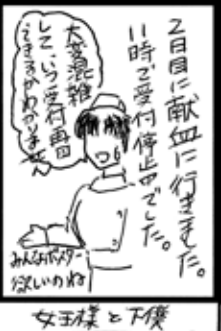 2日目に献血に行きました。
11時で受付停止中でした。
大変混雑
して、いつ受付再開
できるかわかりません
みんなポスター
欲しいのね
女王様と下僕